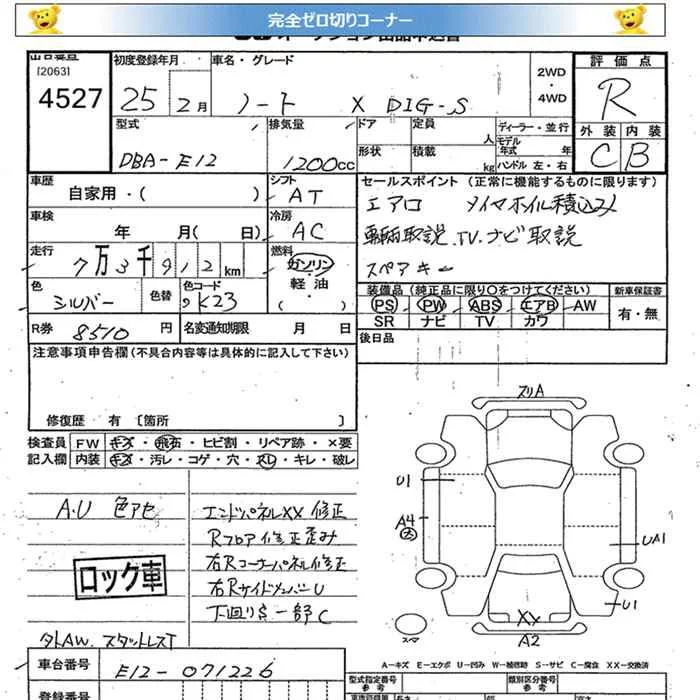 完全ゼロ切りコーナー
出品番号 初度登録年月 車名・グレード 2WD・4WD 評価点
[2063]
4527 25 2月 ノート X DIG-S R
型式 排気量 ドア 定員 人 ディーラー・並行 外装 内装
モデル年式 年 C B
DBA-E12 1200cc 形状 積載 kg ハンドル 左・右
車歴 自家用・( ) シフト AT セールスポイント (正常に機能するものに限ります)
車検 年 月( 日) 冷房 AC エアロ タイヤホイル積込み
走行 7万3千912km 燃料 ガソリン・軽油・( ) 車両取説.TV.ナビ取説
スペアキー
色 シルバー 色替 色コード K23 装備品 (純正品に限り○をつけてください) 新車保証書
PS PW ABS エアB AW 有・無
SR ナビ TV カワ
R券 8510円 名変通知期限 月 日 後日品
注意事項申告欄(不具合内容等は具体的に記入して下さい)
修復歴 有 [箇所 ]
検査員 FW キズ・飛石・ヒビ割・リペア跡・×要
記入欄 内装 キズ・汚レ・コゲ・穴・スレ・キレ・破レ
スリA
U1
A4
UA1
U1
XX
A2
スペア
A.U 色アセ
エンドパネルXX 修正
Rフロア修正歪み
右Rコーナーパネル修正
右RサイドメンバーU
下廻りS一部C
ロック車
外AW. スタットレスT
A-キズ E-エクボ U-凹み W-補修跡 S-サビ C-腐食 XX-交換済
車台番号 E12-071226
型式指定番号 参考 類別区分番号 参考
登録番号